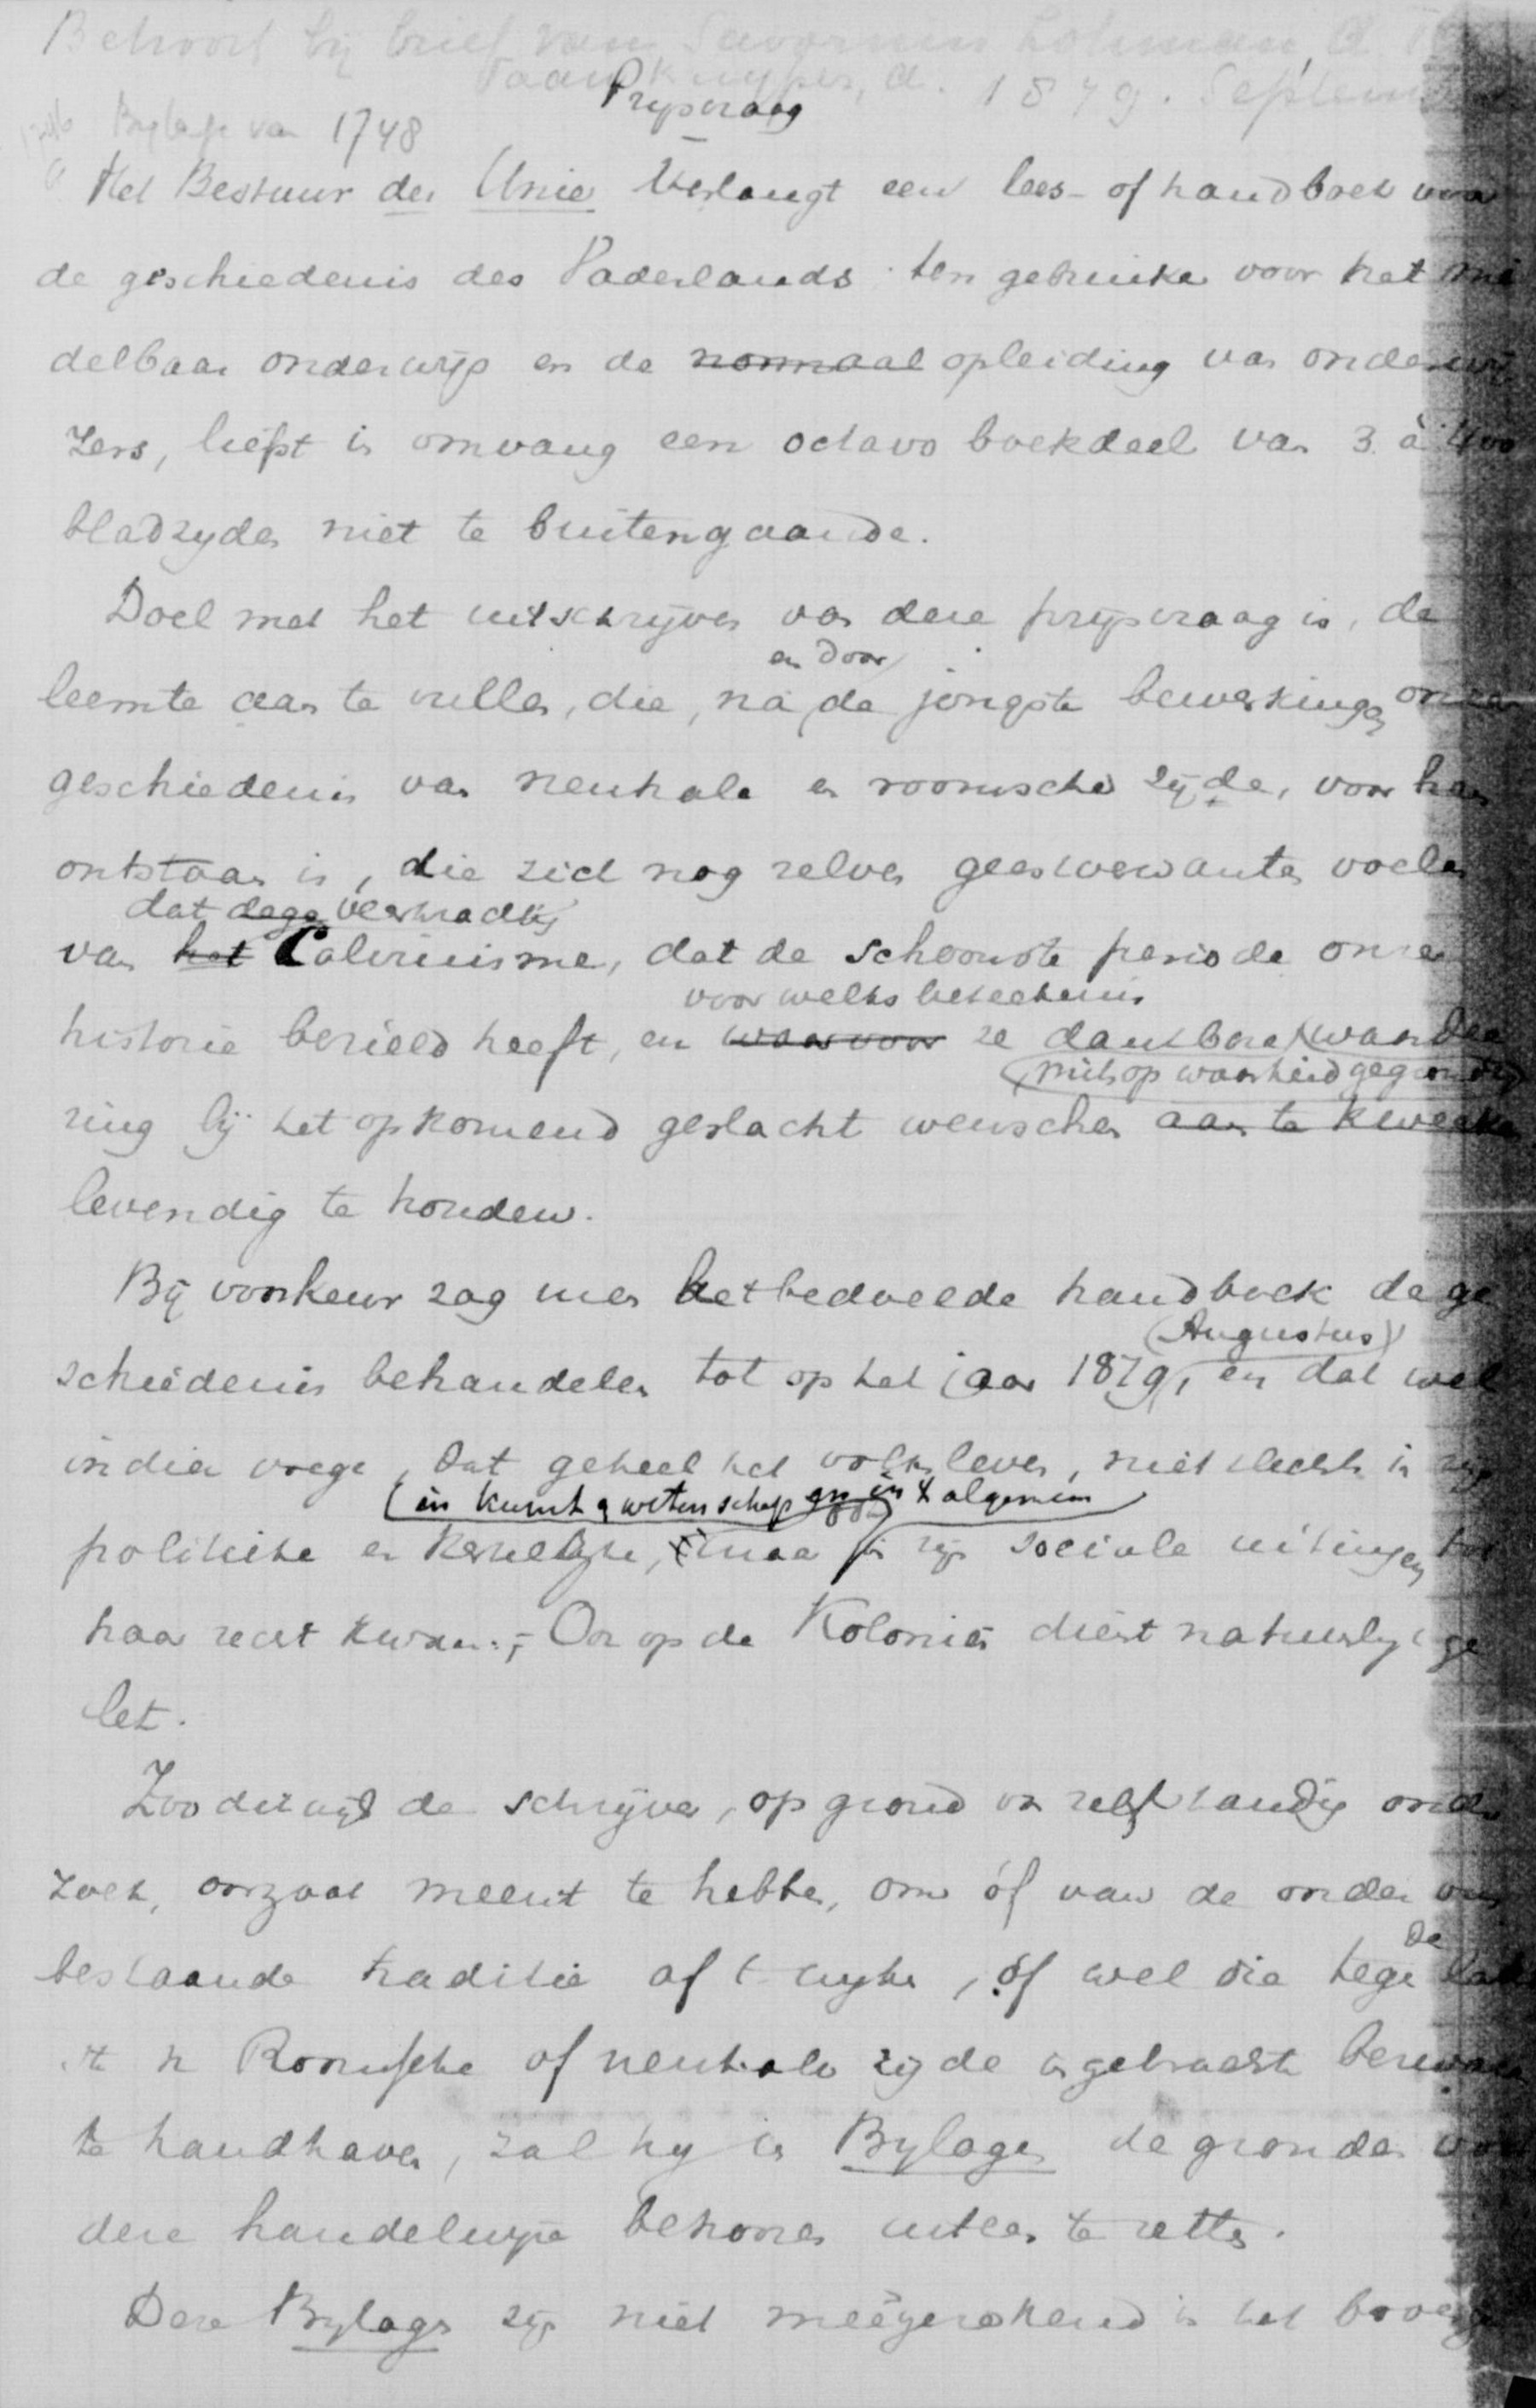 Behoort bij brief van Savornin Lohman, A
aan Kuyper, A. 1879. Septem
Prijsvraag
Bijlage van 1748
Het Bestuur der Unie verlangt een lees- of handboek voor
de geschiedenis des Vaderlands ten gebruike voor het mid
delbaar onderwijs en de normaal opleiding van onderwij
zers, liefst in omvang een octavo boekdeel van 3 à 400
bladzyden niet te buitengaande.
Doel met het uitschrijven van deze prijsvraag is, de
en door
leemte aan te vullen, die, na de jongste bewerkingen onzer
geschiedenis van neutrale en roomsche zijde, voor hen
ontstaan is, die zich nog zelven geestverwanten voelen
dat
van het Calvinisme, dat de schoonste periode onzer
voor welks beteekenis
historie bezield heeft, en waarvoor ze dankbare waardee
mits op waarheid gegronde
ring bij het opkomend geslacht wenschen aan te kweeken
levendig te houden.
Bij voorkeur zag men het bedoelde handboek de ge
(Augustus)
schiedenis behandelen tot op het jaar 1879, en dat wel
in dier voege, dat geheel het volksleven, niet slechts in zijn
in kunst & wetenschap en in 't algemeen
politieke en kerkelijke, maar in zijn sociale uitingen tot
haar recht kwam. Ook op de Koloniën dient natuurlijk ge
let.
Zoo dikwijls de schrijver, op grond van zelfstandig onder
zoek, oorzaak meent te hebben, om óf van de onder ons
bestaande traditie af te wijken, óf wel die tegen de
Roomsche of neutrale zijde ingebrachte bezwaren
te handhaven, zal hij in Bylagen de gronden voor
deze handelwijze behooren uiteen te zetten.
Deze Bylagen zijn niet meêgerekend in het boveng